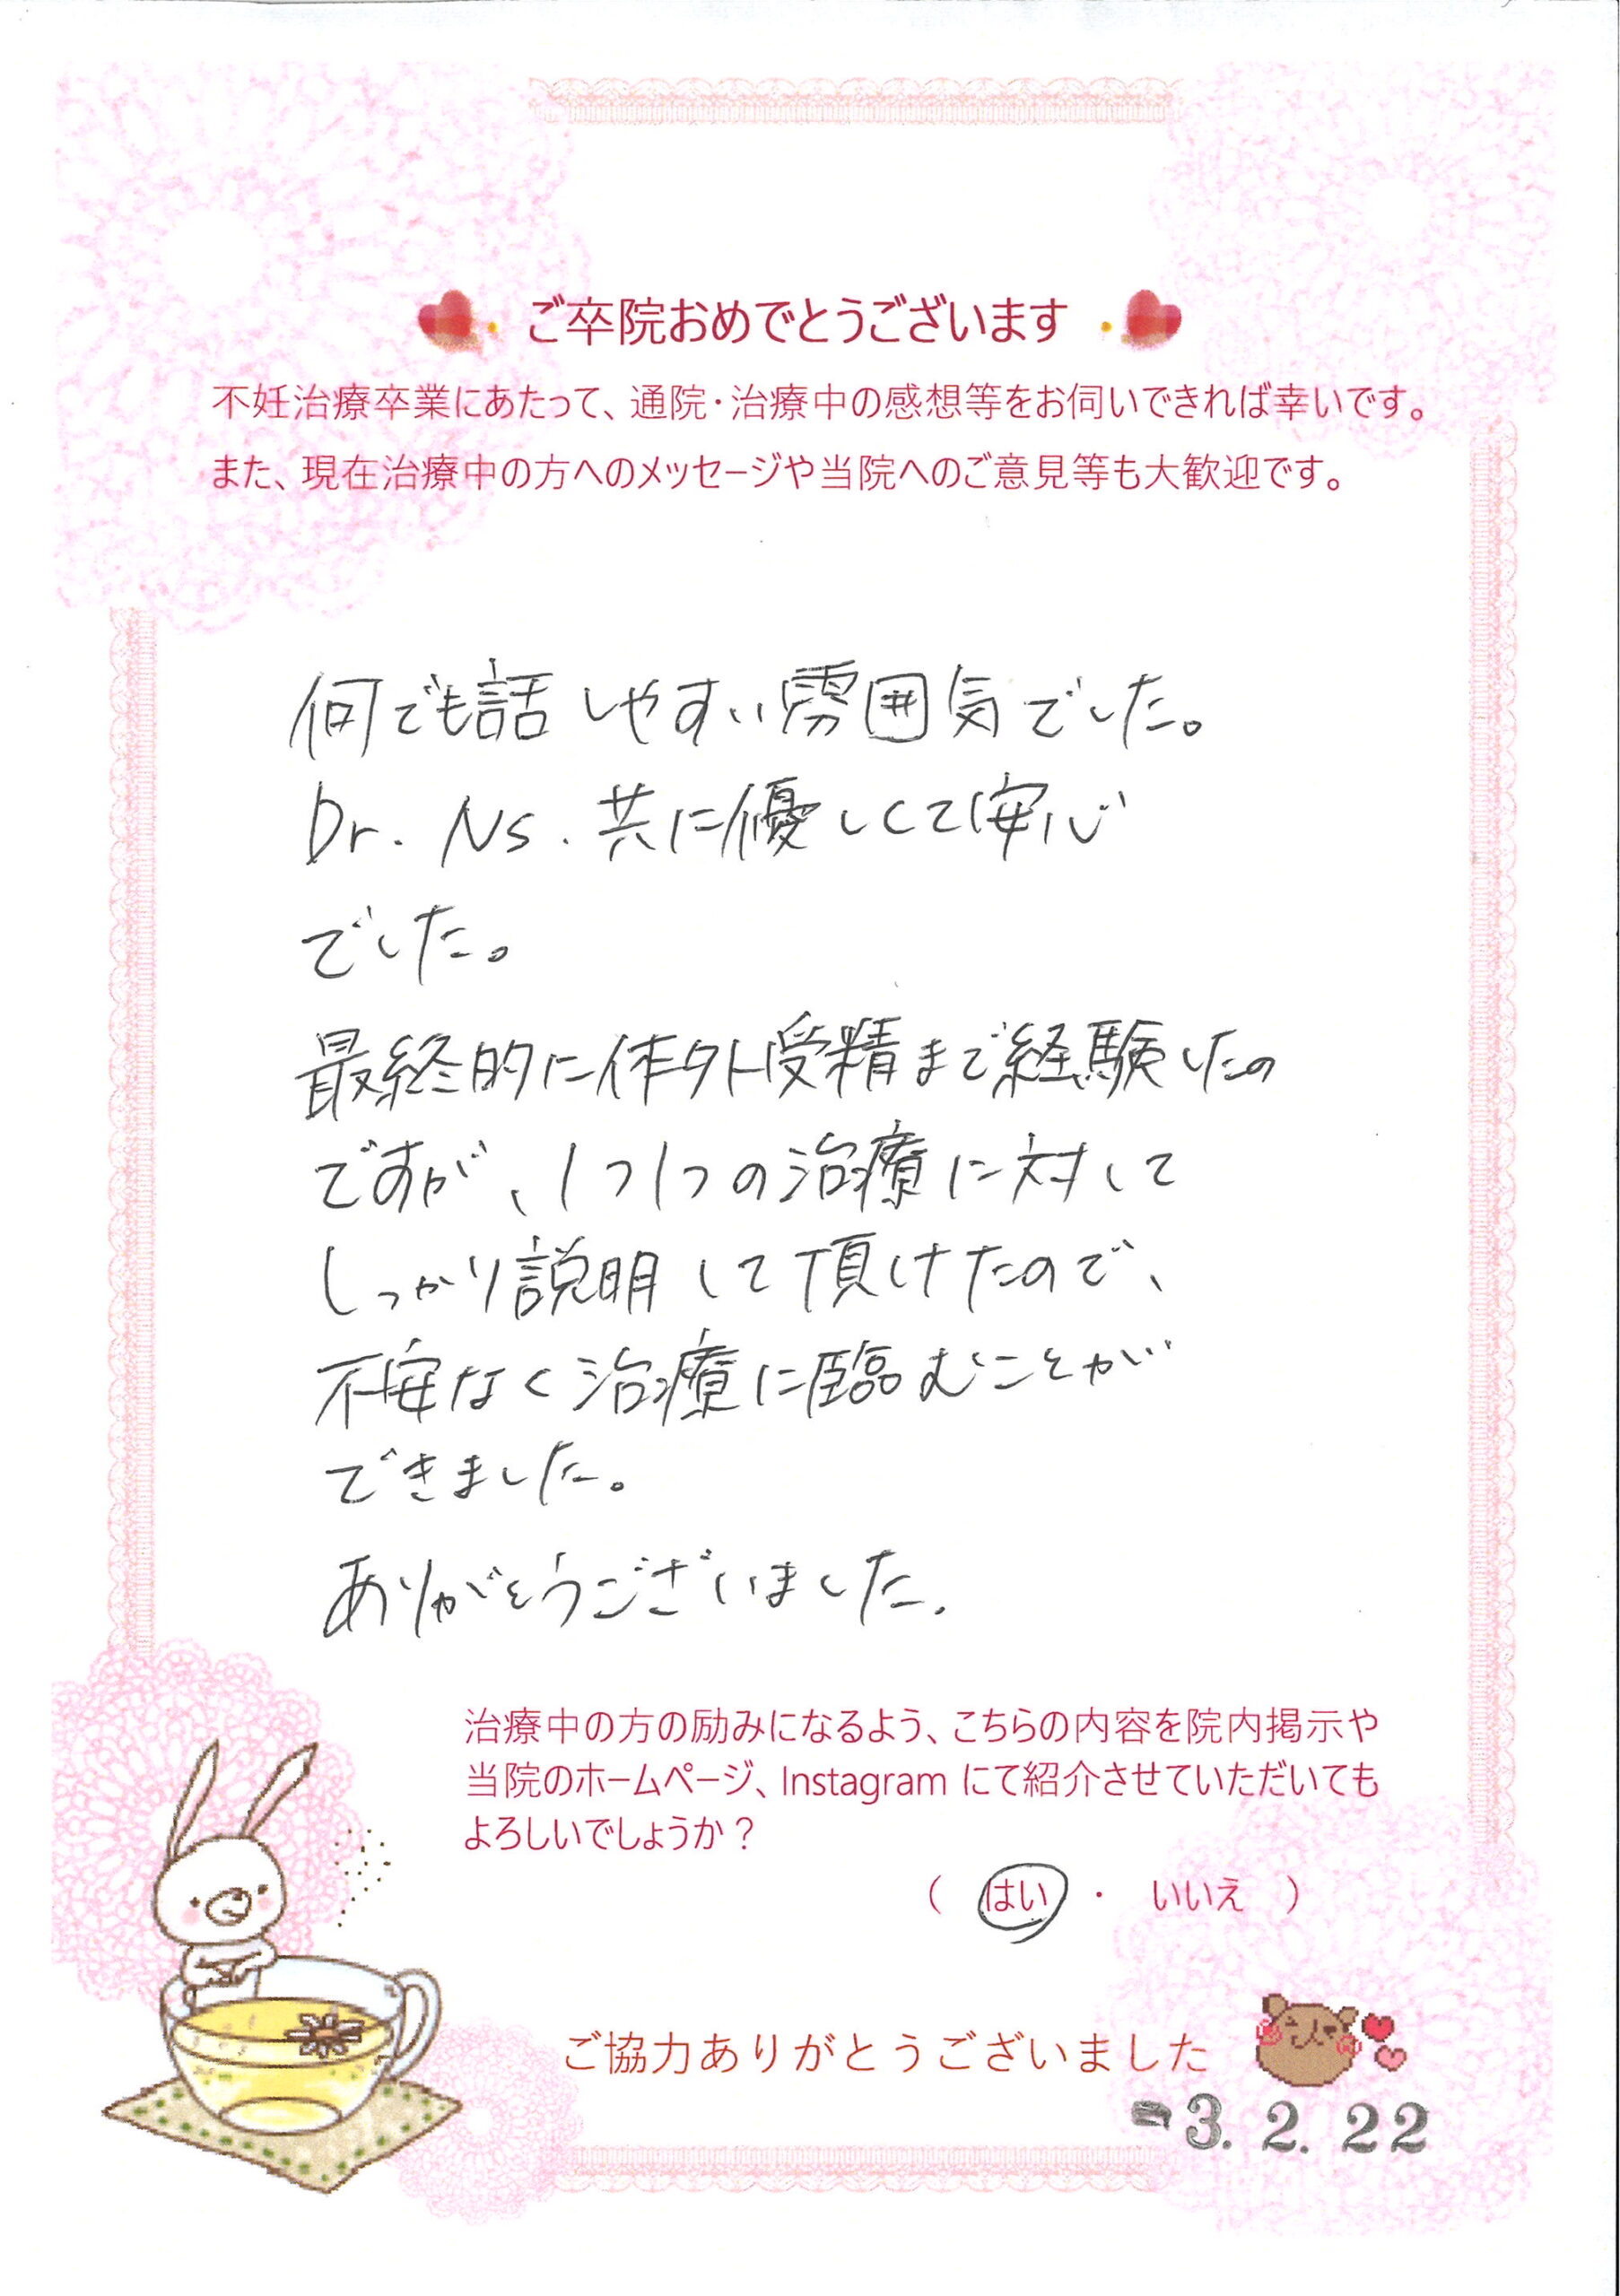 ご卒院おめでとうございます
不妊治療卒業にあたって、通院・治療中の感想等をお伺いできれば幸いです。
また、現在治療中の方へのメッセージや当院へのご意見等も大歓迎です。
何でも話しやすい雰囲気でした。
Dr. Ns. 共に優しくて安心
でした。
最終的に体外受精まで経験したの
ですが、1つ1つの治療に対して
しっかり説明して頂けたので、
不安なく治療に臨むことが
できました。
ありがとうございました.
治療中の方の励みになるよう、こちらの内容を院内掲示や
当院のホームページ、Instagram にて紹介させていただいても
よろしいでしょうか？
（ はい ・ いいえ ）
ご協力ありがとうございました
3. 2. 22